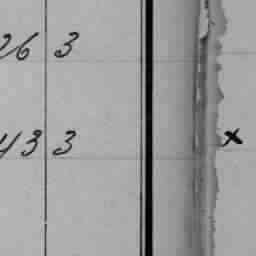 26 3
433 x